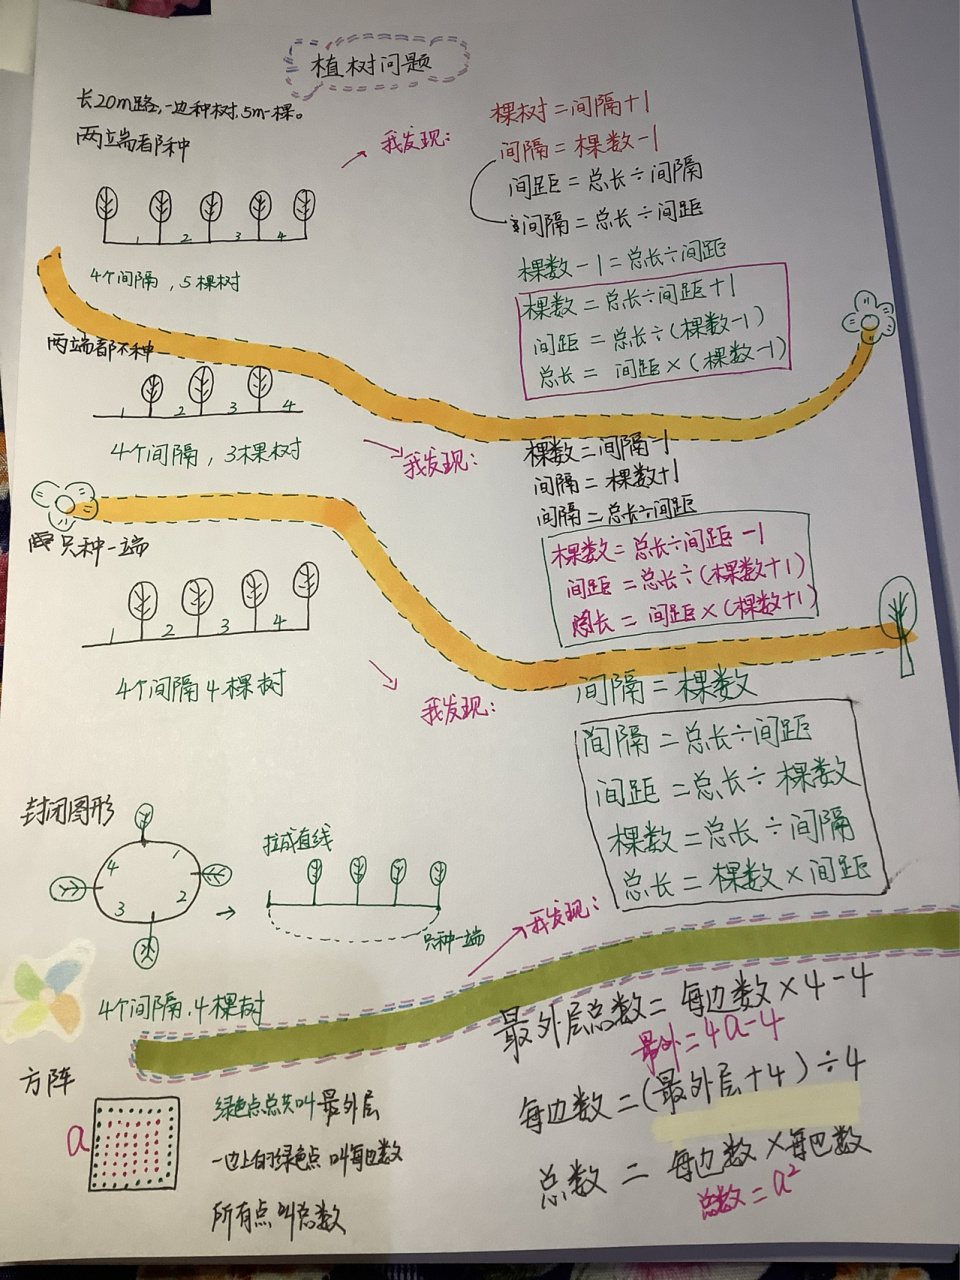 植树问题
长20m路,一边种树,5m一棵。
两端都种
我发现:
1 2 3 4
4个间隔,5棵树
棵树=间隔+1
间隔=棵数-1
间距=总长÷间隔
间隔=总长÷间距
棵数-1=总长÷间距
棵数=总长÷间距+1
间距=总长÷(棵数-1)
总长= 间距×(棵数-1)
两端都不种
1 2 3 4
4个间隔,3棵树
我发现:
棵数=间隔-1
间隔=棵数+1
间隔=总长÷间距
棵数=总长÷间距-1
间距=总长÷(棵数+1)
总长=间距×(棵数+1)
只种一端
1 2 3 4
4个间隔4棵树
我发现:
间隔=棵数
间隔=总长÷间距
间距=总长÷棵数
棵数=总长÷间隔
总长=棵数×间距
封闭图形
4 1
3 2
拉成直线
只种一端
4个间隔,4棵树
我发现:
方阵
a
绿色点总共叫最外层
一边上的绿色点叫每边数
所有点叫总数
最外层总数=每边数×4-4
最外=4a-4
每边数=(最外层+4)÷4
总数=每边数×每边数
总数=a²